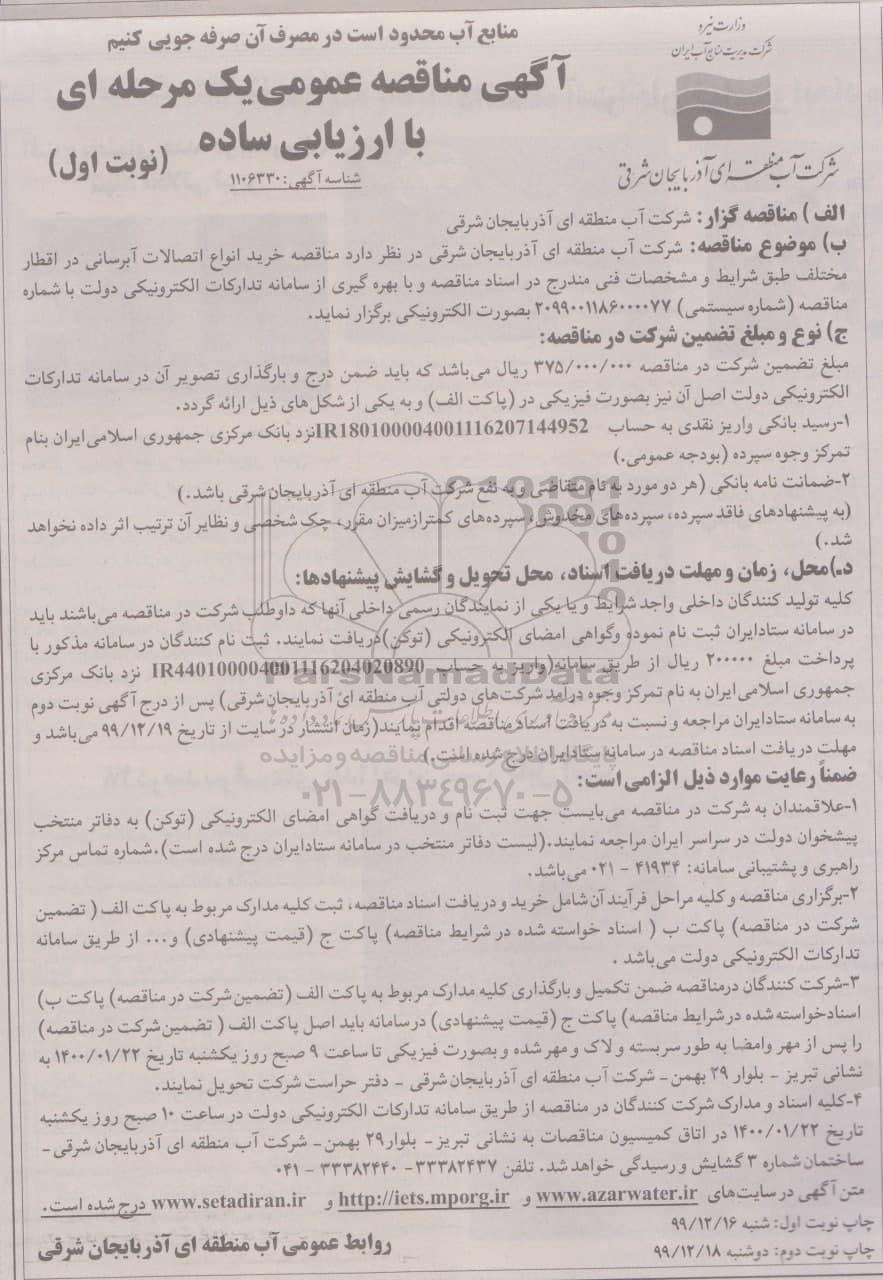 منابع آب محدود است در مصرف آن صرفه جویی کنیم
وزارت نیرو
شرکت مدیریت منابع آب ایران
شرکت آب منطقه ای آذربایجان شرقی
آگهی مناقصه عمومی یک مرحله ای
با ارزیابی ساده
(نوبت اول)
شناسه آگهی: ۱۱۰۶۳۳۰
الف) مناقصه گزار: شرکت آب منطقه ای آذربایجان شرقی
ب) موضوع مناقصه: شرکت آب منطقه ای آذربایجان شرقی در نظر دارد مناقصه خرید انواع اتصالات آبرسانی در اقطار
مختلف طبق شرایط و مشخصات فنی مندرج در اسناد مناقصه و با بهره گیری از سامانه تدارکات الکترونیکی دولت با شماره
مناقصه (شماره سیستمی) ۲۰۹۹۰۰۱۱۸۶۰۰۰۰۷۷ بصورت الکترونیکی برگزار نماید.
ج) نوع و مبلغ تضمین شرکت در مناقصه:
مبلغ تضمین شرکت در مناقصه ۳۷۵/۰۰۰/۰۰۰ ریال می‌باشد که باید ضمن درج و بارگذاری تصویر آن در سامانه تدارکات
الکترونیکی دولت اصل آن نیز بصورت فیزیکی در (پاکت الف) و به یکی از شکل‌های ذیل ارائه گردد.
۱-رسید بانکی واریز نقدی به حساب IR180100004001116207144952نزد بانک مرکزی جمهوری اسلامی ایران بنام
تمرکز وجوه سپرده (بودجه عمومی.)
۲-ضمانت نامه بانکی (هر دو مورد به نام متقاضی و به نفع شرکت آب منطقه ای آذربایجان شرقی باشد.)
(به پیشنهادهای فاقد سپرده، سپرده‌های مخدوش، سپرده‌های کمتر ازمیزان مقرر، چک شخصی و نظایر آن ترتیب اثر داده نخواهد
شد.)
د-)محل، زمان و مهلت دریافت اسناد، محل تحویل و گشایش پیشنهادها:
کلیه تولید کنندگان داخلی واجد شرایط و یا یکی از نمایندگان رسمی داخلی آنها که داوطلب شرکت در مناقصه می‌باشند باید
در سامانه ستادایران ثبت نام نموده وگواهی امضای الکترونیکی (توکن)دریافت نمایند. ثبت نام کنندگان در سامانه مذکور با
پرداخت مبلغ ۲۰۰۰۰۰ ریال از طریق سامانه(واریز به حساب IR440100004001116204020890 نزد بانک مرکزی
جمهوری اسلامی ایران به نام تمرکز وجوه درآمد شرکت‌های دولتی آب منطقه ائ آذربایجان شرقی) پس از درج آگهی نوبت دوم
به سامانه ستادایران مراجعه و نسبت به دریافت اسناد مناقصه اقدام نمایند(زمان انتشار در سایت از تاریخ ۹۹/۱۲/۱۹ می‌باشد و
مهلت دریافت اسناد مناقصه در سامانه ستادایران درج شده است.)
ضمناً رعایت موارد ذیل الزامی است:
۱-علاقمندان به شرکت در مناقصه می‌بایست جهت ثبت نام و دریافت گواهی امضای الکترونیکی (توکن) به دفاتر منتخب
پیشخوان دولت در سراسر ایران مراجعه نمایند.(لیست دفاتر منتخب در سامانه ستادایران درج شده است).شماره تماس مرکز
راهبری و پشتیبانی سامانه: ۴۱۹۳۴ - ۰۲۱ می‌باشد.
۲-برگزاری مناقصه و کلیه مراحل فرآیند آن شامل خرید و دریافت اسناد مناقصه، ثبت کلیه مدارک مربوط به پاکت الف ( تضمین
شرکت در مناقصه) پاکت ب ( اسناد خواسته شده در شرایط مناقصه) پاکت ج (قیمت پیشنهادی) و... از طریق سامانه
تدارکات الکترونیکی دولت می‌باشد .
۳-شرکت کنندگان درمناقصه ضمن تکمیل و بارگذاری کلیه مدارک مربوط به پاکت الف (تضمین شرکت در مناقصه) پاکت ب)
اسنادخواسته شده در شرایط مناقصه) پاکت ج (قیمت پیشنهادی) درسامانه باید اصل پاکت الف ( تضمین شرکت در مناقصه)
را پس از مهر وامضا به طور سربسته و لاک و مهر شده و بصورت فیزیکی تا ساعت ۹ صبح روز یکشنبه تاریخ ۱۴۰۰/۰۱/۲۲ به
نشانی تبریز - بلوار ۲۹ بهمن- شرکت آب منطقه ای آذربایجان شرقی - دفتر حراست شرکت تحویل نمایند.
۴-کلیه اسناد و مدارک شرکت کنندگان در مناقصه از طریق سامانه تدارکات الکترونیکی دولت در ساعت ۱۰ صبح روز یکشنبه
تاریخ ۱۴۰۰/۰۱/۲۲ در اتاق کمیسیون مناقصات به نشانی تبریز- بلوار۲۹ بهمن- شرکت آب منطقه ای آذربایجان شرقی-
ساختمان شماره ۳ گشایش و رسیدگی خواهد شد. تلفن ۳۳۳۸۲۴۳۷- ۳۳۳۸۲۴۴۰ - ۰۴۱
متن آگهی در سایت‌های www.azarwater.ir و http://iets.mporg.ir و www.setadiran.ir درج شده است.
چاپ نوبت اول: شنبه ۹۹/۱۲/۱۶
چاپ نوبت دوم: دوشنبه ۹۹/۱۲/۱۸
روابط عمومی آب منطقه ای آذربایجان شرقی
ParsNamadData
پایگاه اطلاع رسانی مناقصه و مزایده
۰۲۱-۸۸۳۴۹۶۷۰-۵